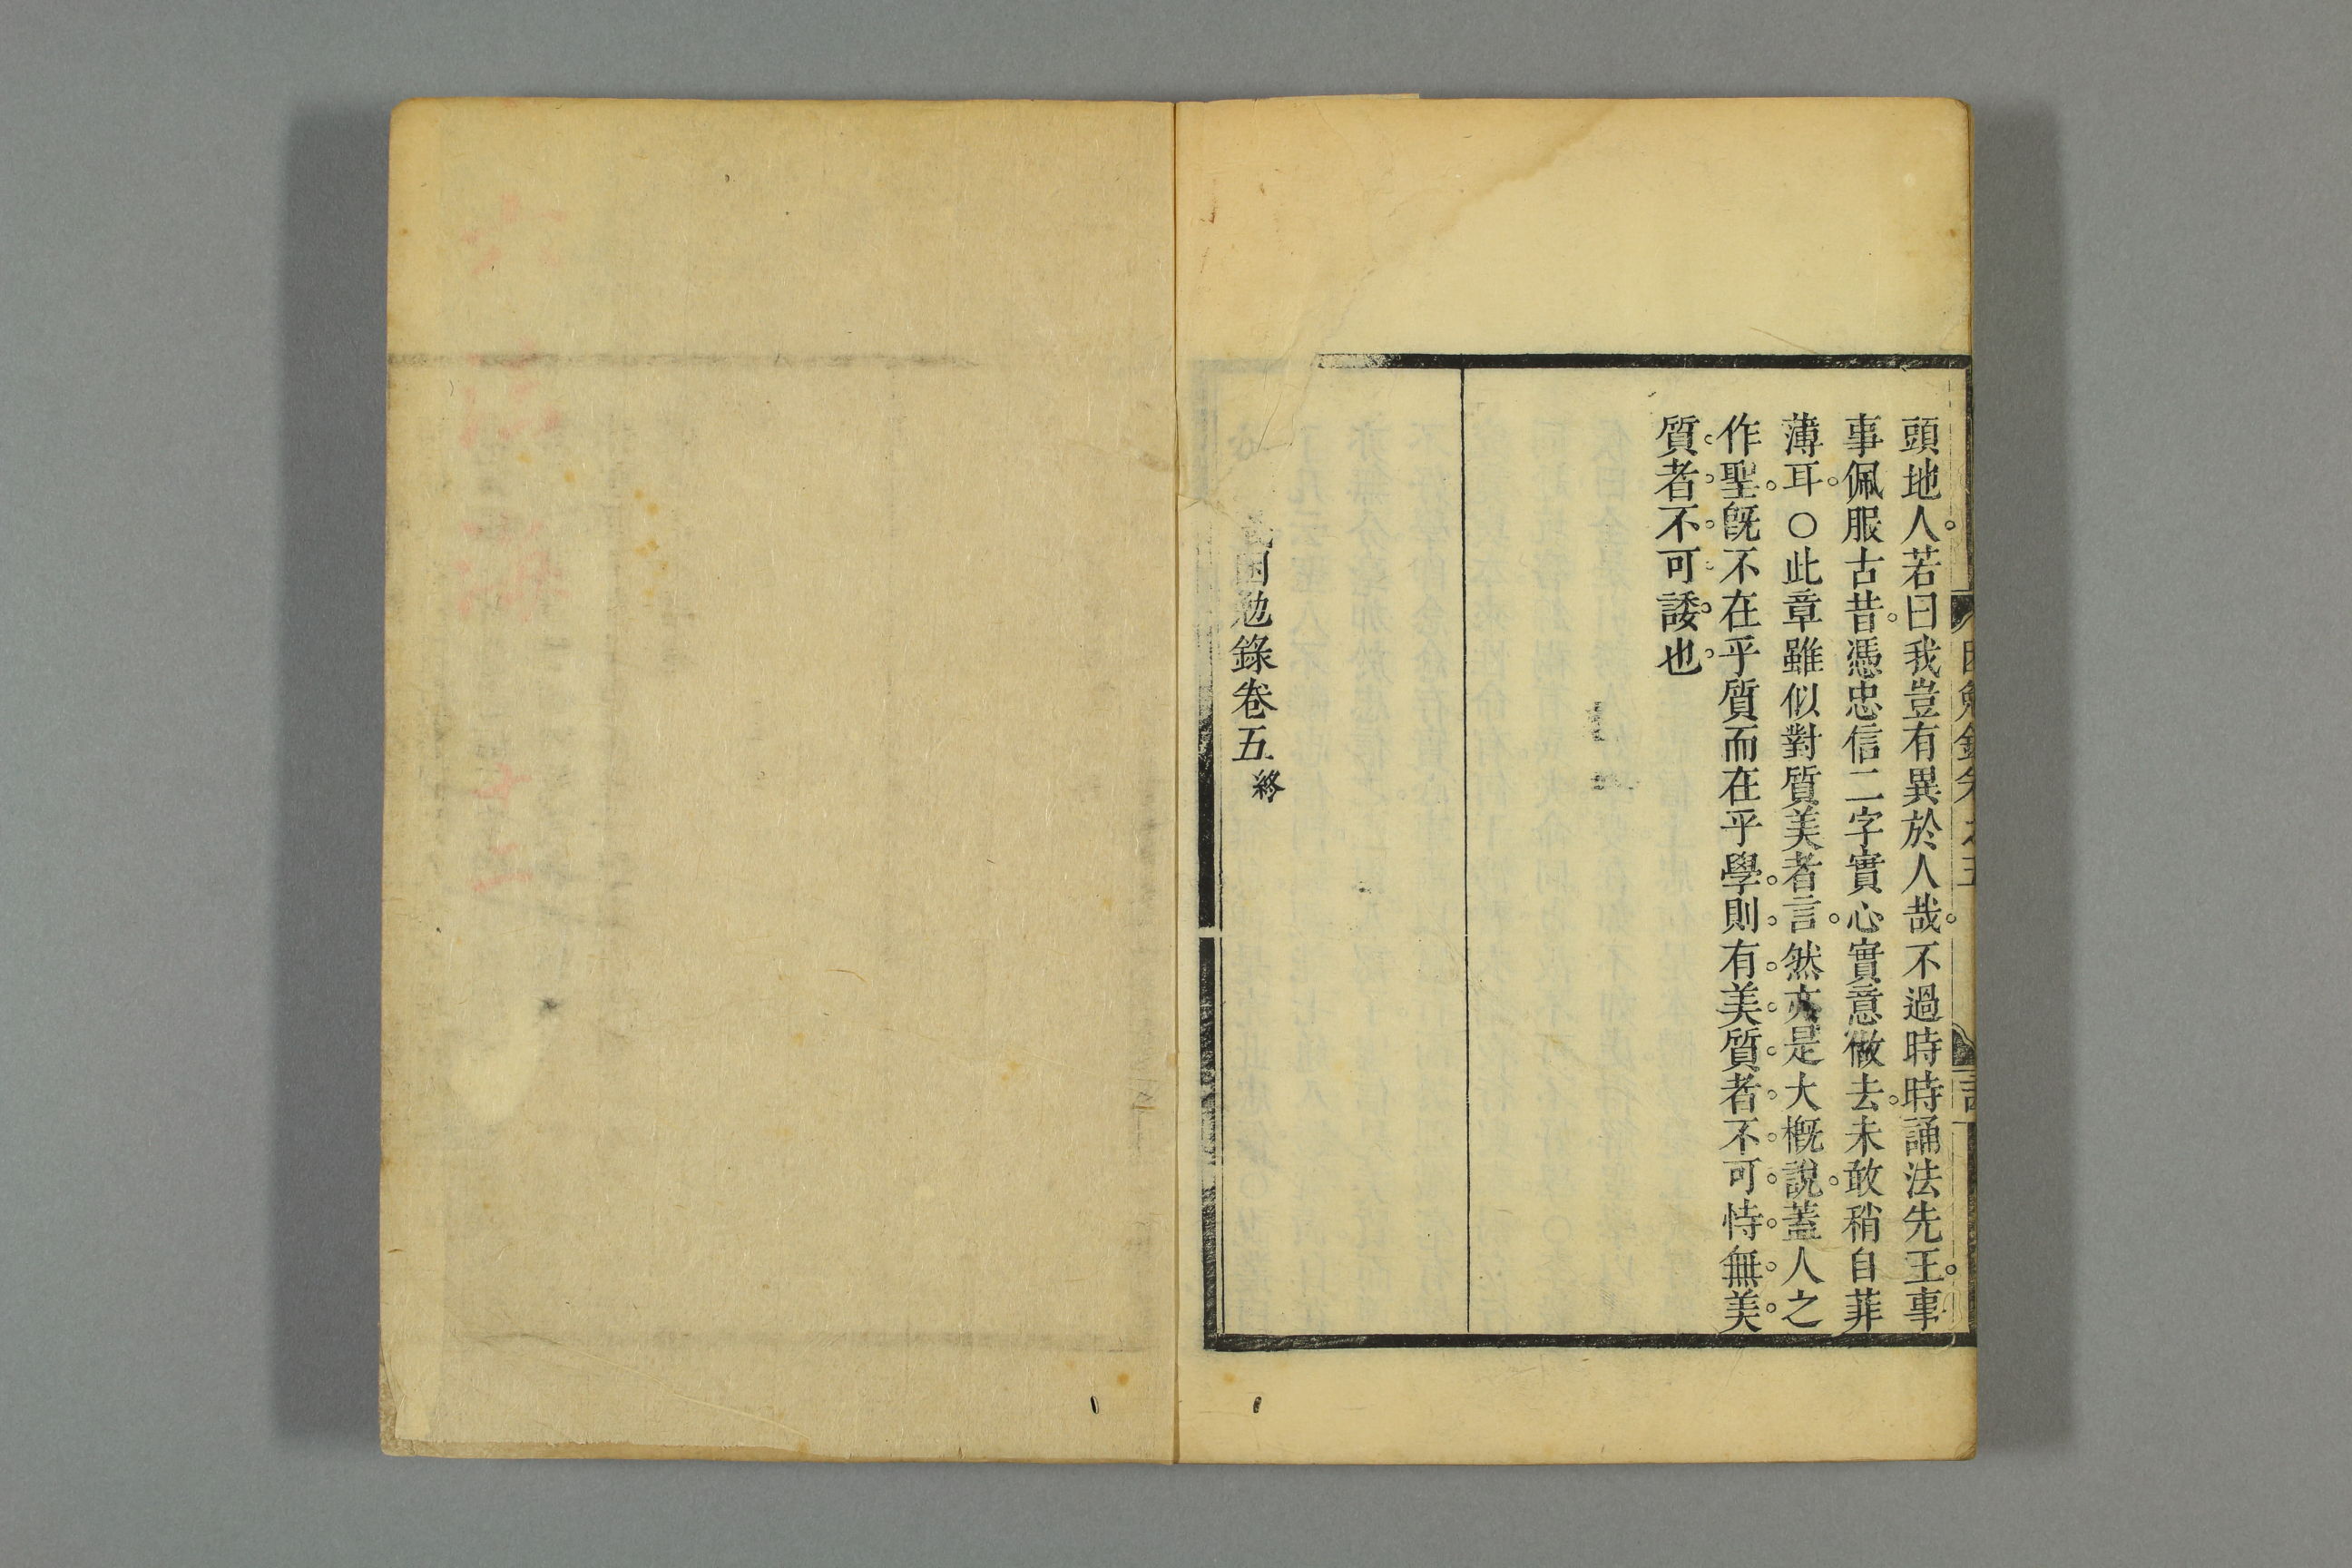 頭地人若曰我豈有異於人哉不過時時誦法先王事
事佩服古昔憑忠信二字實心實意做去未敢稍自菲
薄耳○此章雖似對質美者言然亦是大概說蓋人之
作聖旣不在乎質而在乎學則有美質者不可恃無美
質者不可諉也
困勉錄卷五終